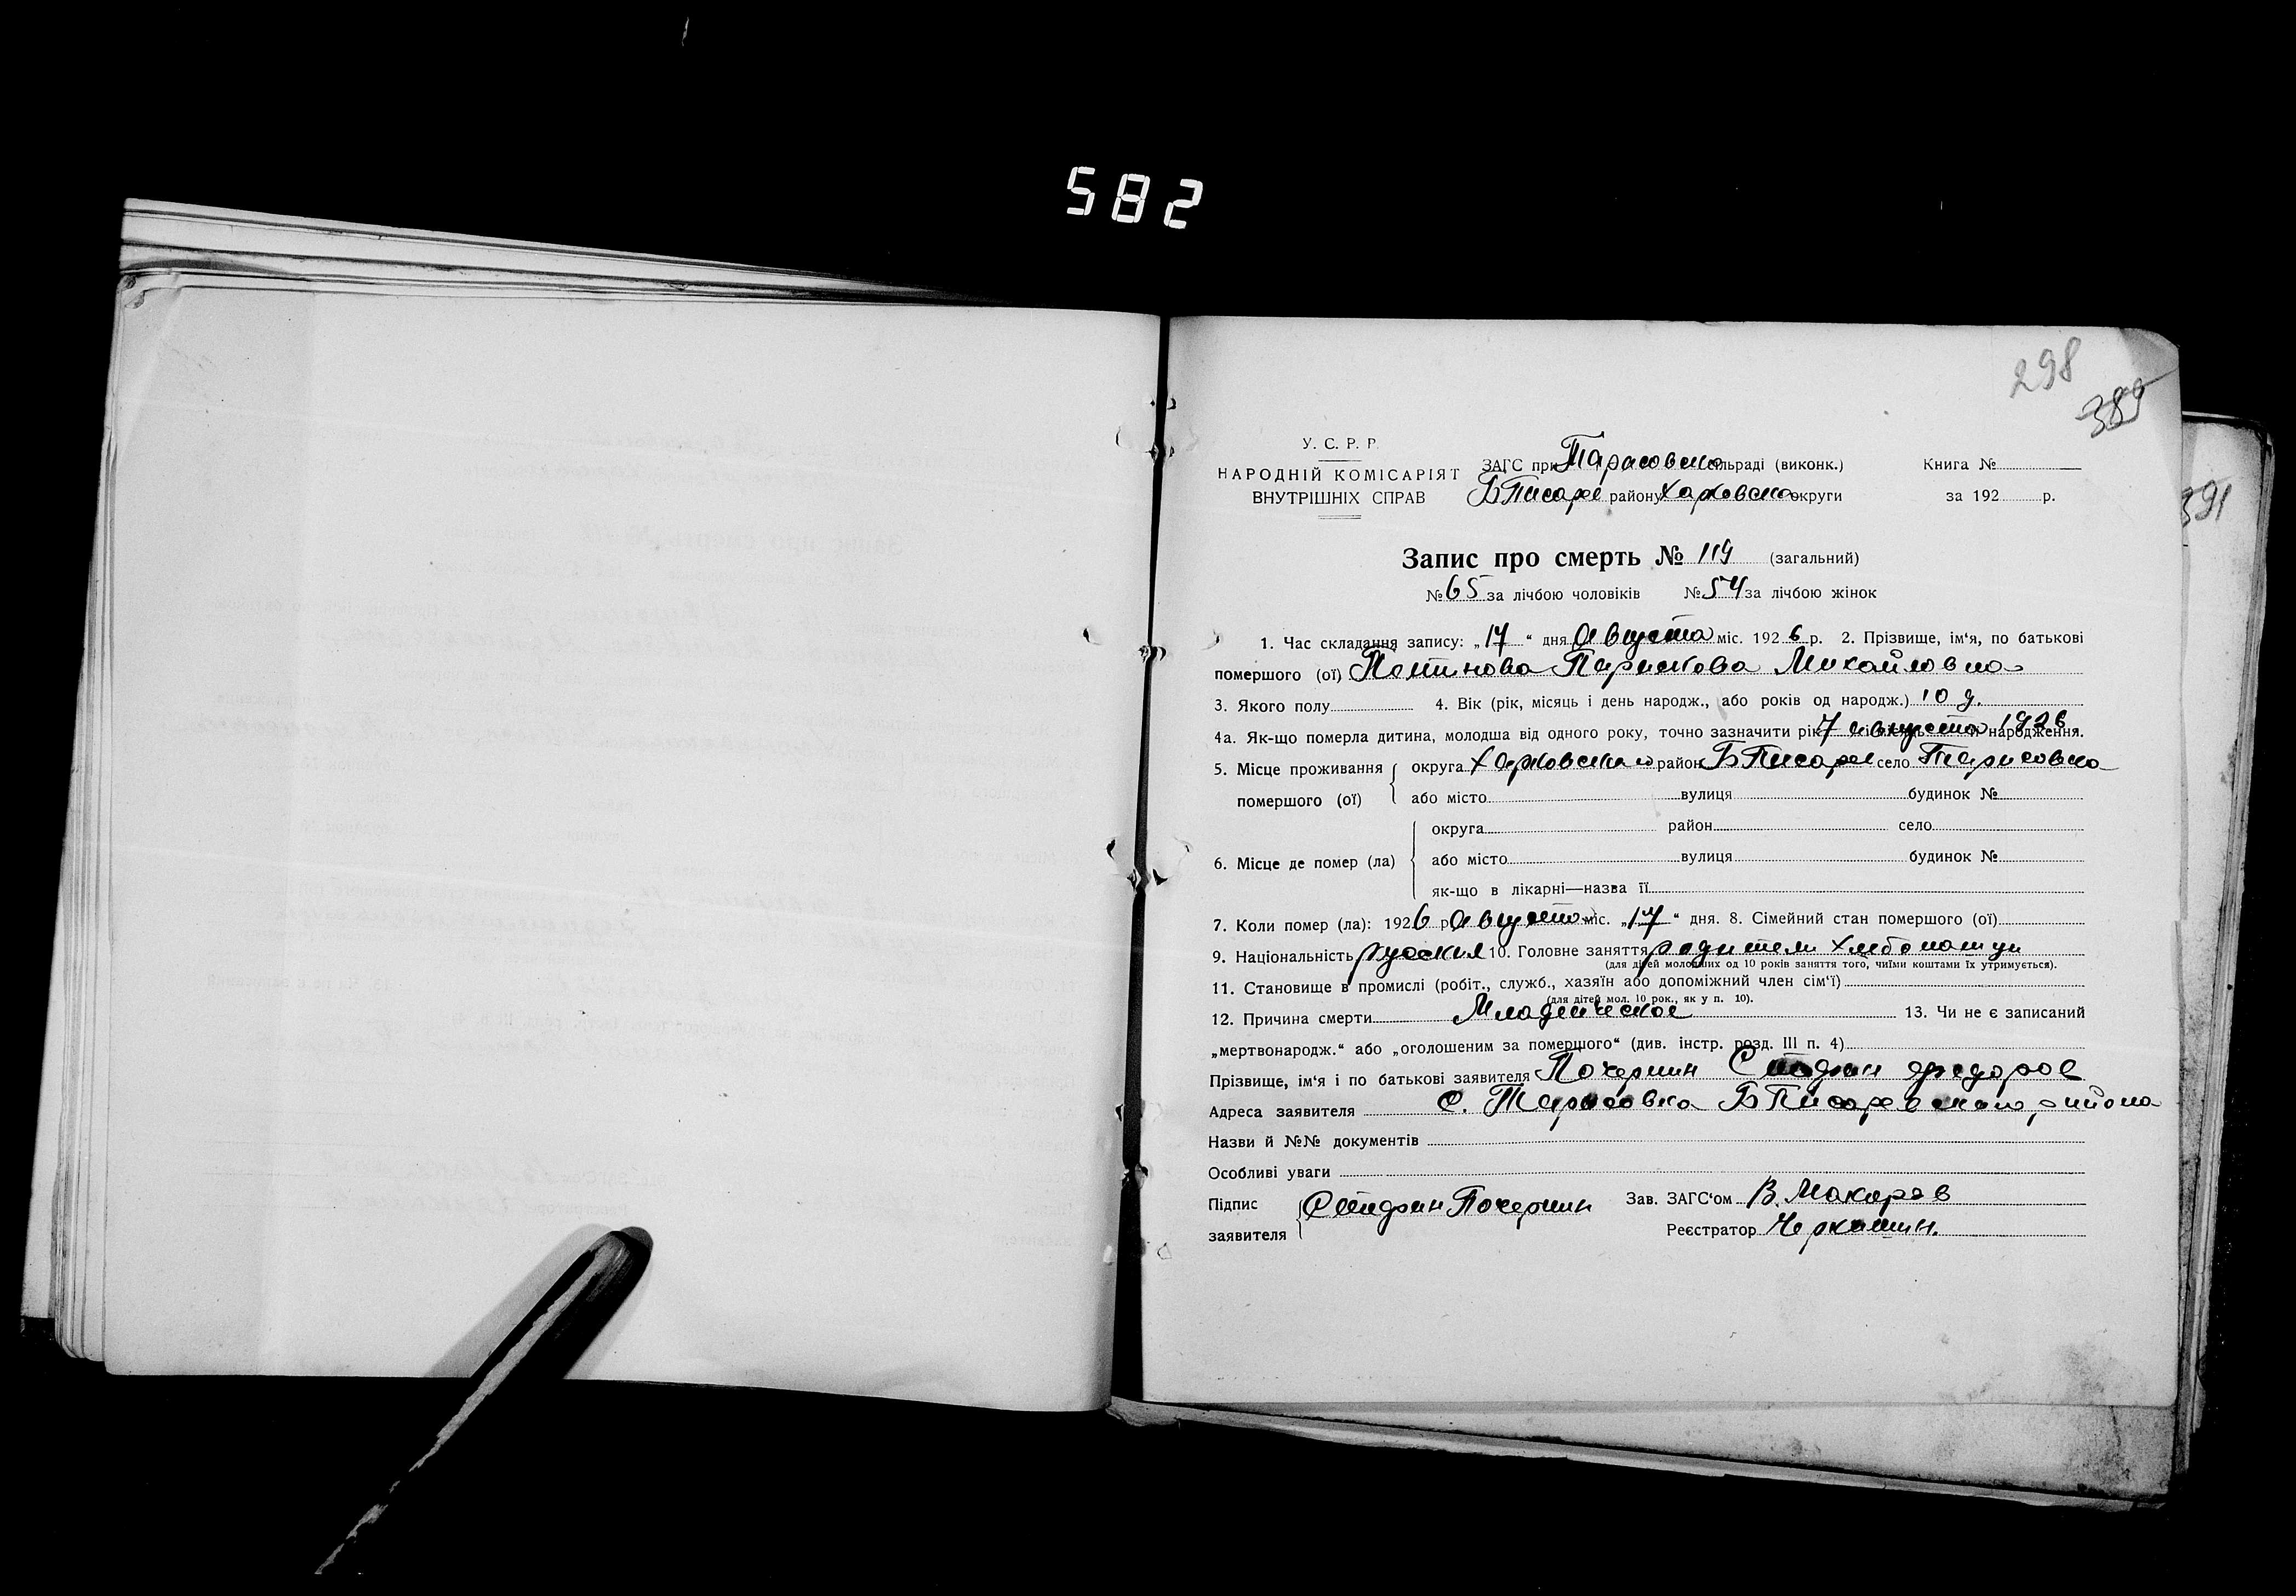 582
298
389
391
У. С. Р. Р.
НАРОДНІЙ КОМІСАРІЯТ
ВНУТРІШНІХ СПРАВ
ЗАГС при Тарасовско сільраді (виконк.)
БПисаре району Харковска округи
Книга №
за 192 р.
Запис про смерть № 119 (загальний)
№ 65 за лічбою чоловіків № 54 за лічбою жінок
1. Час складання запису: „17“ дня Августа міс. 1926 р. 2. Прізвище, ім'я, по батькові
помершого (ої) Михайловна
3. Якого полу 4. Вік (рік, місяць і день народж., або років од народж.) 10 д.
4а. Як-що померла дитина, молодша від одного року, точно зазначити рік 7 августа 1926 народження.
5. Місце проживання помершого (ої) округа Харковская район БПисаре село Тарасовка
або місто вулиця будинок №
6. Місце де помер (ла) округа район село
або місто вулиця будинок №
як-що в лікарні—назва її
7. Коли помер (ла): 1926 р Августа міс. „17“ дня. 8. Сімейний стан помершого (ої)
9. Національність руския 10. Головне заняття родители хлебопашци
(для дітей молодших од 10 років заняття того, чиїми коштами їх утримується).
11. Становище в промислі (робіт., служб., хазяїн або допоміжний член сім'ї)
(для дітей мол. 10 рок., як у п. 10).
12. Причина смерти Младенческое 13. Чи не є записаний
„мертвонародж.“ або „оголошеним за помершого“ (див. інстр. розд. III п. 4)
Прізвище, ім'я і по батькові заявителя
Адреса заявителя с. Тарасовка БПисаревскаго района
Назви й №№ документів
Особливі уваги
Підпис заявителя
Зав. ЗАГС'ом В. Макарев
Реєстратор Черкашин.